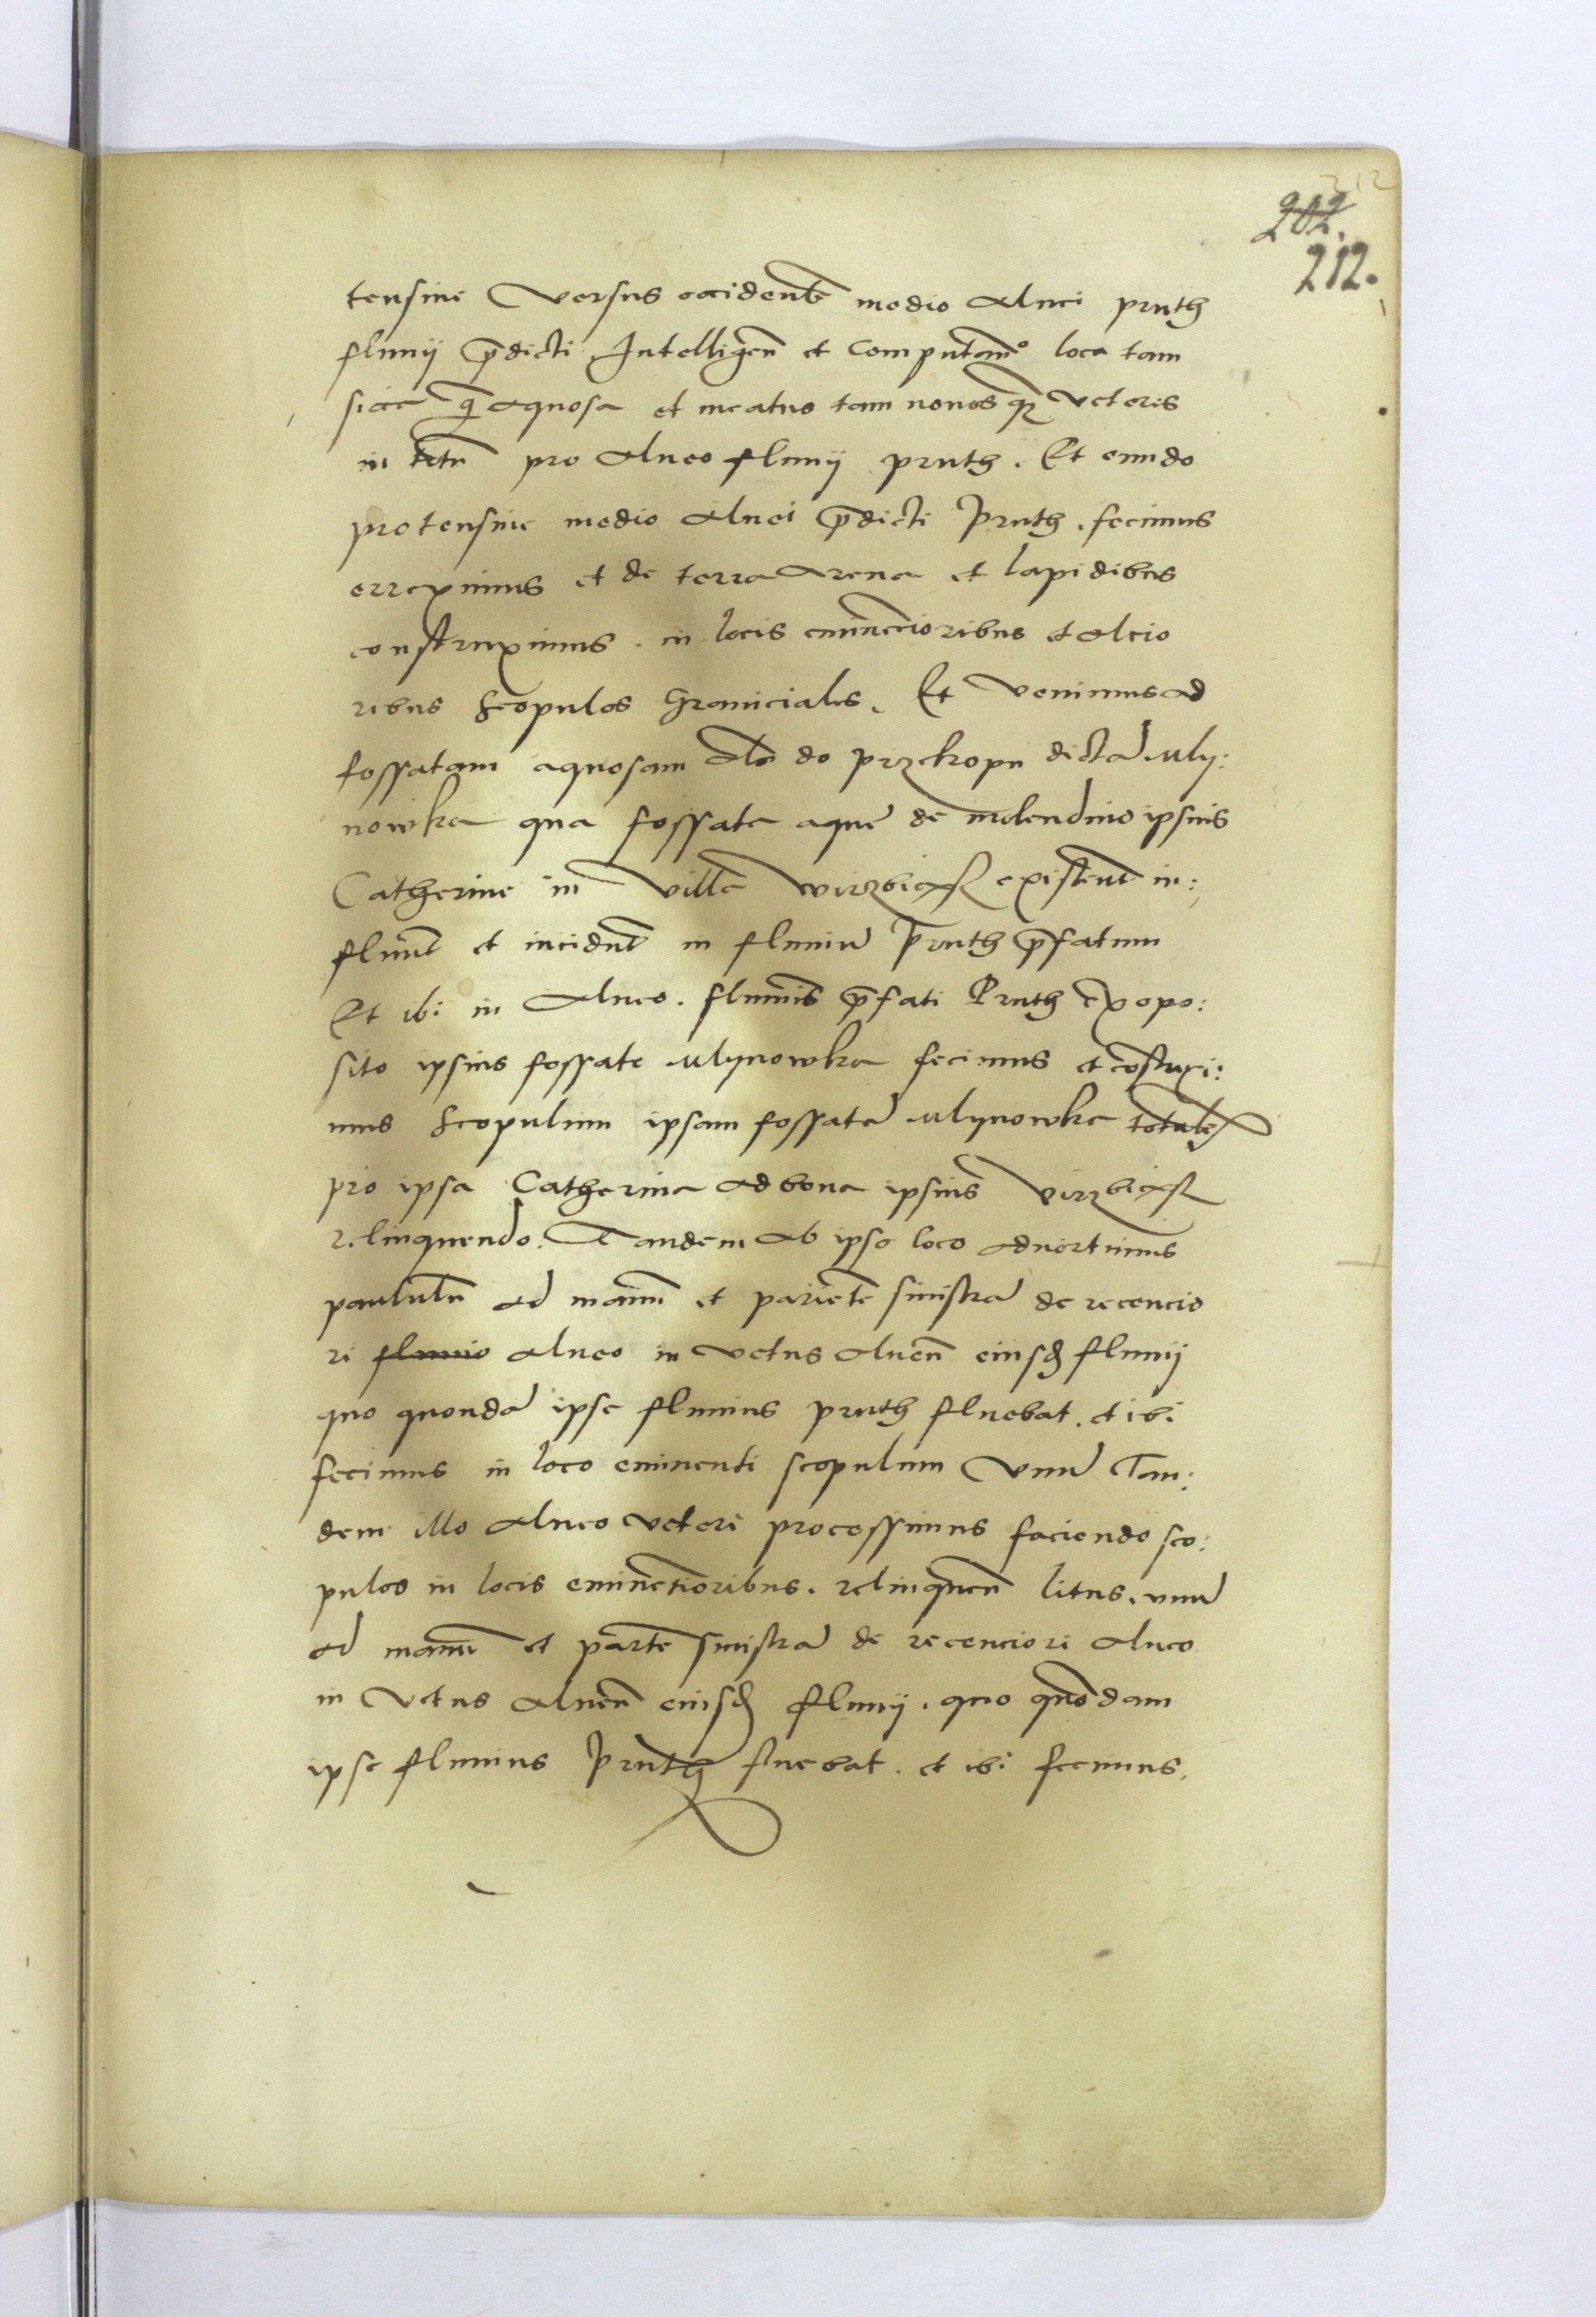 212
202.
212.
tensive versus occidentē medio aluei pruth
fluuij p̄dicti Intelligen̄ et Computam⁹ loca tam
sicca q̄ aquosa et meatus tam nouos q̄ veteris
in totū pro alueo fluuij pruth. Et eundo
protensiue medio aluei p̄dicti Pruth. fecimus
erreximus et de terra arena et lapidibus
construximus. in locis eminēcioribus et alcio
ribus scopulos Granicialis. Et venimus ad
fossatam aquosam al̄s do przekopu dictā Mly:
nowka qua fossata aque de molendino ipsius
Catherine in villa wirzbiąsz existent̄ in:
fluūt et incidūt in fluuiū Pruth p̄fatum
Et ibi in alueo. fluminis p̄fati Pruth ex opo:
sito ipsius fossate Mlynowka fecimus et cōstruxi:
mus scopulum ipsam fossatā Mlynowka totalr̄
pro ipsa Catherina ad bona ipsius Virzbiąsz
relinquendo. Tandem ab ipso loco aduertimus
paululū ad manū et parietē sinistrā de recencio
ri fluuio alueo in vetus alueū eiusd fluuij
quo quondā ipse fluuius pruth fluebat. et ibi
fecimus in loco eminenti scopulum vnū Tan:
dem illo alueo vetere processimus faciendo sco:
pulos in locis eminētioribus. relinquen̄ litus. vnū
ad manū et partē sinistrā de recenciori alueo
in vetus alueū eiusd fluuij. quo quōdam
ipse fluuius Pruth fluebat. et ibi fecimus.